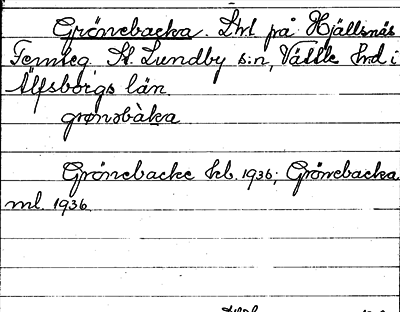 Grönebacka. Lht på Hjällsnäs
Femneg. St. Lundby s:n, Vättle hrd i
Älfsborgs län.
grønəbàka
Grönebacke hb. 1936; Grönebacka
ml. 1936